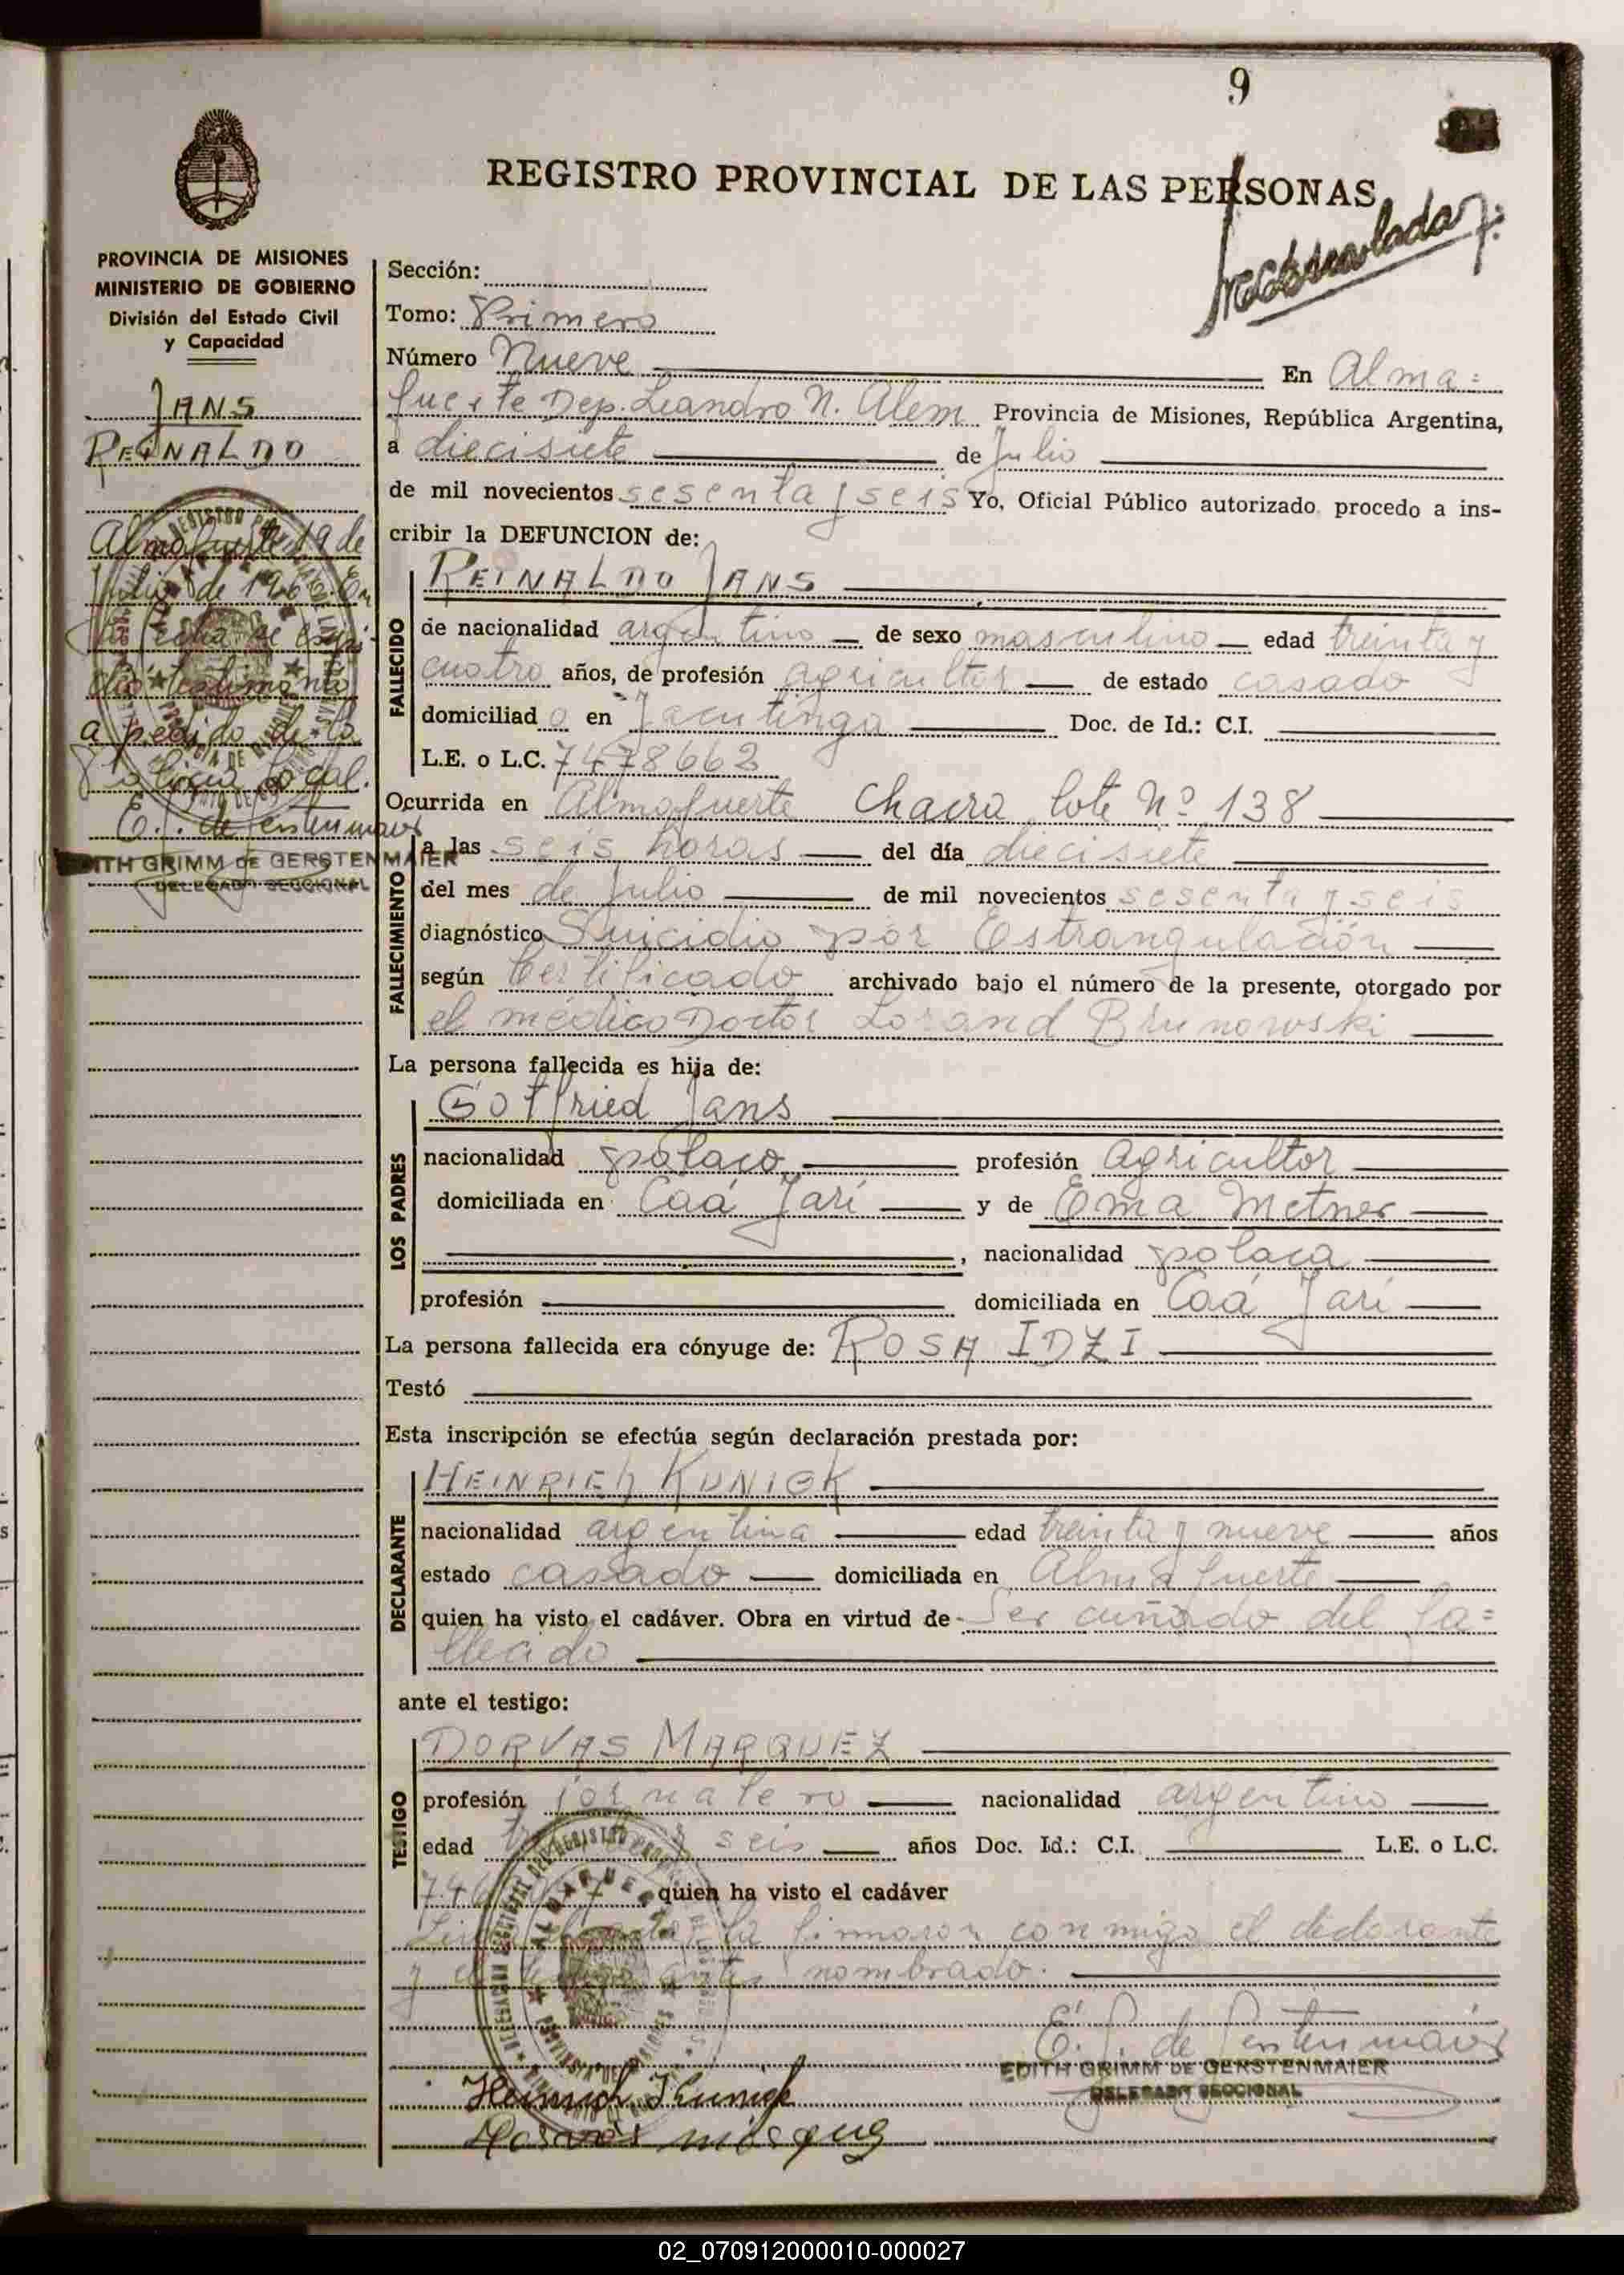 9
REGISTRO PROVINCIAL DE LAS PERSONAS
PROVINCIA DE MISIONES
MINISTERIO DE GOBIERNO
División del Estado Civil
y Capacidad
JANS
REINALDO
Almafuerte 19 de
Julio de 1966. En
la fecha se expi-
dió testimonio
a pedido de la
Policia local.
EDITH GRIMM DE GERSTENMAIER
DELEGADA SECCIONAL
Sección:
Tomo: Primero
Número Nueve En Alma=
fuerte Dep. Leandro N. Alem Provincia de Misiones, República Argentina,
a diecisiete de Julio
de mil novecientos sesenta y seis Yo, Oficial Público autorizado procedo a ins-
cribir la DEFUNCION de:
FALLECIDO
REINALDO JANS
de nacionalidad argentino de sexo masculino edad treinta y
cuatro años, de profesión agricultor de estado casado
domiciliad o en Jacutinga Doc. de Id.: C.I.
L.E. o L.C. 7478662
Ocurrida en Almafuerte Chacra lote Nº 138
FALLECIMIENTO
a las seis horas del día diecisiete
del mes de Julio de mil novecientos sesenta y seis
diagnóstico Suicidio por Estrangulación
según Certificado archivado bajo el número de la presente, otorgado por
el médico Doctor Lorand Brunowski
La persona fallecida es hija de:
LOS PADRES
Gotfried Jans
nacionalidad polaco profesión agricultor
domiciliada en Caá Jarí y de Ema Metner
, nacionalidad polaca
profesión domiciliada en Caá Jarí
La persona fallecida era cónyuge de: ROSA IDZI
Testó
Esta inscripción se efectúa según declaración prestada por:
DECLARANTE
HEINRICH KUNICK
nacionalidad argentina edad treinta y nueve años
estado casado domiciliada en Almafuerte
quien ha visto el cadáver. Obra en virtud de Ser cuñado del fa=
llecido
ante el testigo:
TESTIGO
DORVAS MARQUEZ
profesión jornalero nacionalidad argentino
edad seis años Doc. Id.: C.I. L.E. o L.C.
quien ha visto el cadáver
la firmaron conmigo el declarante
y el testigo antes nombrado.
E. G. de Gerstenmaier
EDITH GRIMM DE GERSTENMAIER
DELEGADA SECCIONAL
Heinrich Kunick
02_070912000010-000027